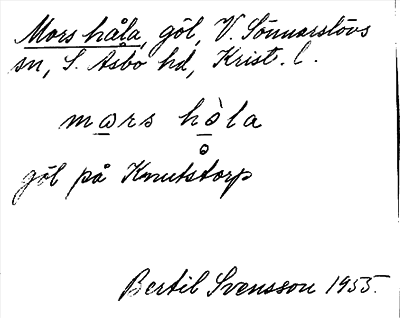 Mors håla, göl, V. Sönnarslövs
sn, S. Åsbo hd, Krist. l.
mɷrs hòla
å
göl på Knutstorp
Bertil Svensson 1955.